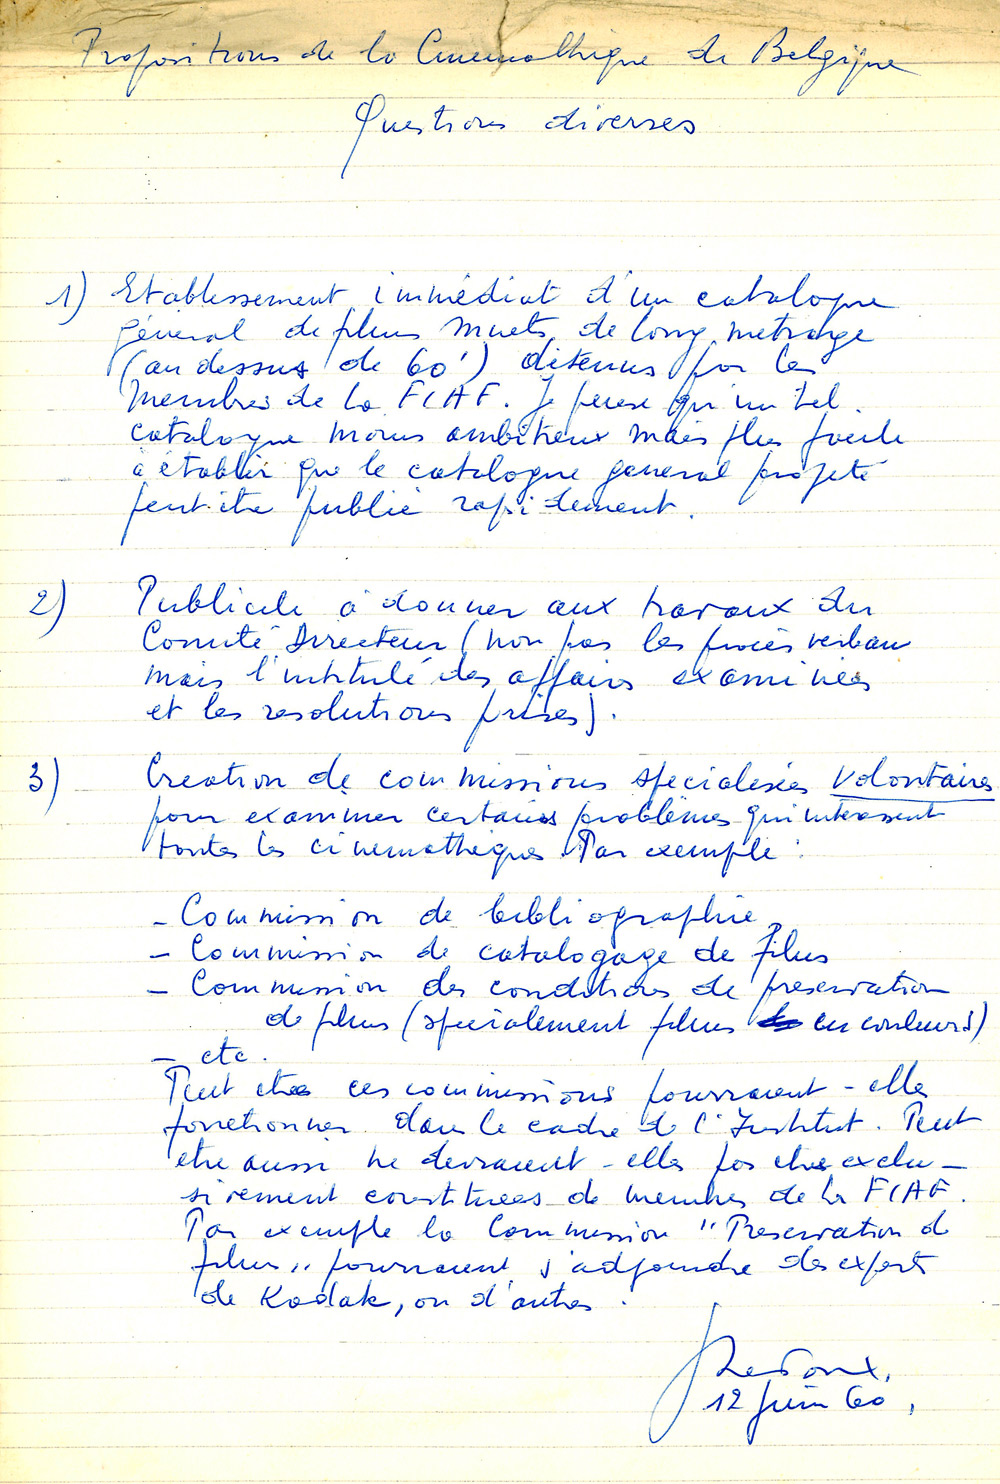 Propositions de la Cinemathèque de Belgique
Questions diverses
1) Etablissement immédiat d'un catalogue
général de films muets de long métrage
(au dessus de 60') détenus par les
Membres de la FIAF. Je pense qu'un tel
catalogue moins ambitieux mais plus facile
à établir que le catalogue general projeté
peut être publié rapidement.
2) Publicité à donner aux travaux du
Comité Directeur (non pas les procès verbaux
mais l'intitulé des affaires examinées
et les resolutions prises).
3) Creation de commissions specialisées volontaires
pour examiner certains problèmes qui interessent
toutes les cinemathèques. Par exemple :
- Commission de bibliographie
- Commission de catalogage de films
- Commission des conditions de preservation
de films (specialement films en couleurs)
- etc.
Peut etre ces commissions pourraient-elles
fonctionner dans le cadre de l'Institut. Peut
etre aussi ne devraient-elles pas etre exclu-
sivement constituées de membres de la FIAF.
Par exemple la Commission "Preservation de
films" pourraient s'adjoindre des experts
de Kodak, ou d'autres.
Ledoux.
12 Juin 60.